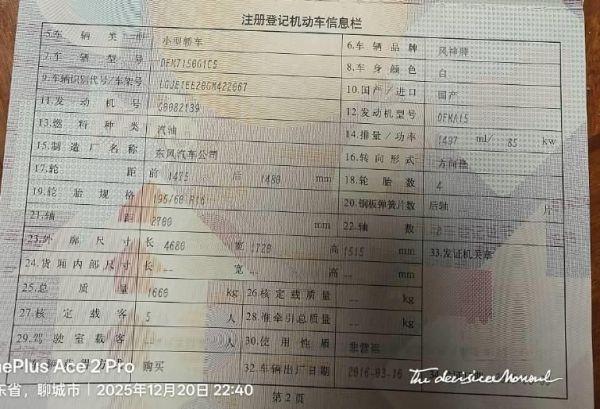 注册登记机动车信息栏
5.车辆类型 小型轿车 6.车辆品牌 风神牌
7.车辆型号 DFM7156G1C5 8.车身颜色 白
9.车辆识别代号/车架号 LGJE1EE20GM422667 10.国产/进口 国产
11.发动机号 G0082139 12.发动机型号 DFMA15
13.燃料种类 汽油 14.排量/功率 1497 ml/ 85 kw
15.制造厂名称 东风汽车公司 16.转向形式 方向盘
17.轮距 前 1475 后 1480 mm 18.轮胎数 4
19.轮胎规格 195/60 R16 20.钢板弹簧片数 后轴 片
21.轴距 2700 mm 22.轴数 2
23.外廓尺寸 长 4680 宽 1720 高 1515 mm 33.发证机关章
24.货厢内部尺寸 长 -- 宽 -- 高 -- mm
25.总质量 1660 kg 26.核定载质量 -- kg
27.核定载客 5 人 28.准牵引总质量 -- kg
29.驾驶室载客 -- 人 30.使用性质 非营运
购买 32.车辆出厂日期 2016-03-16
第 2 页
nePlus Ace 2 Pro
东省，聊城市 | 2025年12月20日 22:40
The decisive Moment